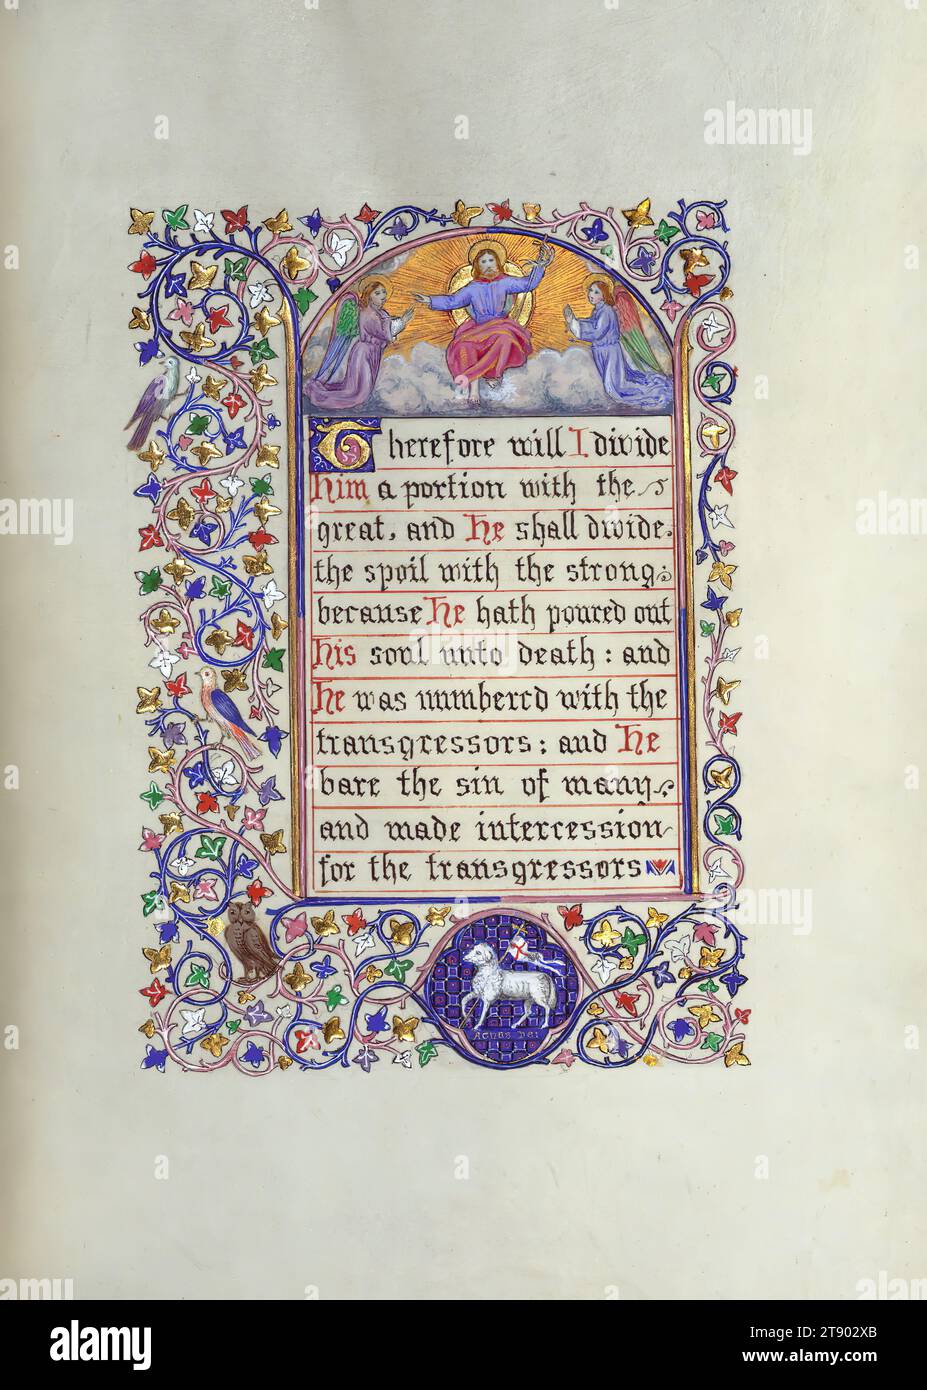 Therefore will I divide
him a portion with the
great, and He shall divide
the spoil with the strong
because He hath poured out
His soul unto death: and
He was numbered with the
transgressors: and He
bare the sin of many
and made intercession
for the transgressors
Agnus Dei
alamy
Image ID: 2T902XB
www.alamy.com